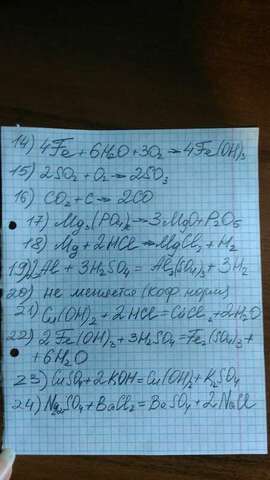 14) 4Fe + 6H₂O + 3O₂ → 4Fe(OH)₃
15) 2SO₂ + O₂ → 2SO₃
16) CO₂ + C → 2CO
17) Mg₃(PO₄)₂ → 3MgO + P₂O₅
18) Mg + 2HCl → MgCl₂ + H₂
19) 2Al + 3H₂SO₄ = Al₂(SO₄)₃ + 3H₂
20) не меняется (коэф норм)
21) Cu(OH)₂ + 2HCl = CuCl₂ + 2H₂O
22) 2Fe(OH)₃ + 3H₂SO₄ = Fe₂(SO₄)₃ +
+ 6H₂O
23) CuSO₄ + 2KOH = Cu(OH)₂ + K₂SO₄
24) Na₂SO₄ + BaCl₂ = BaSO₄ + 2NaCl